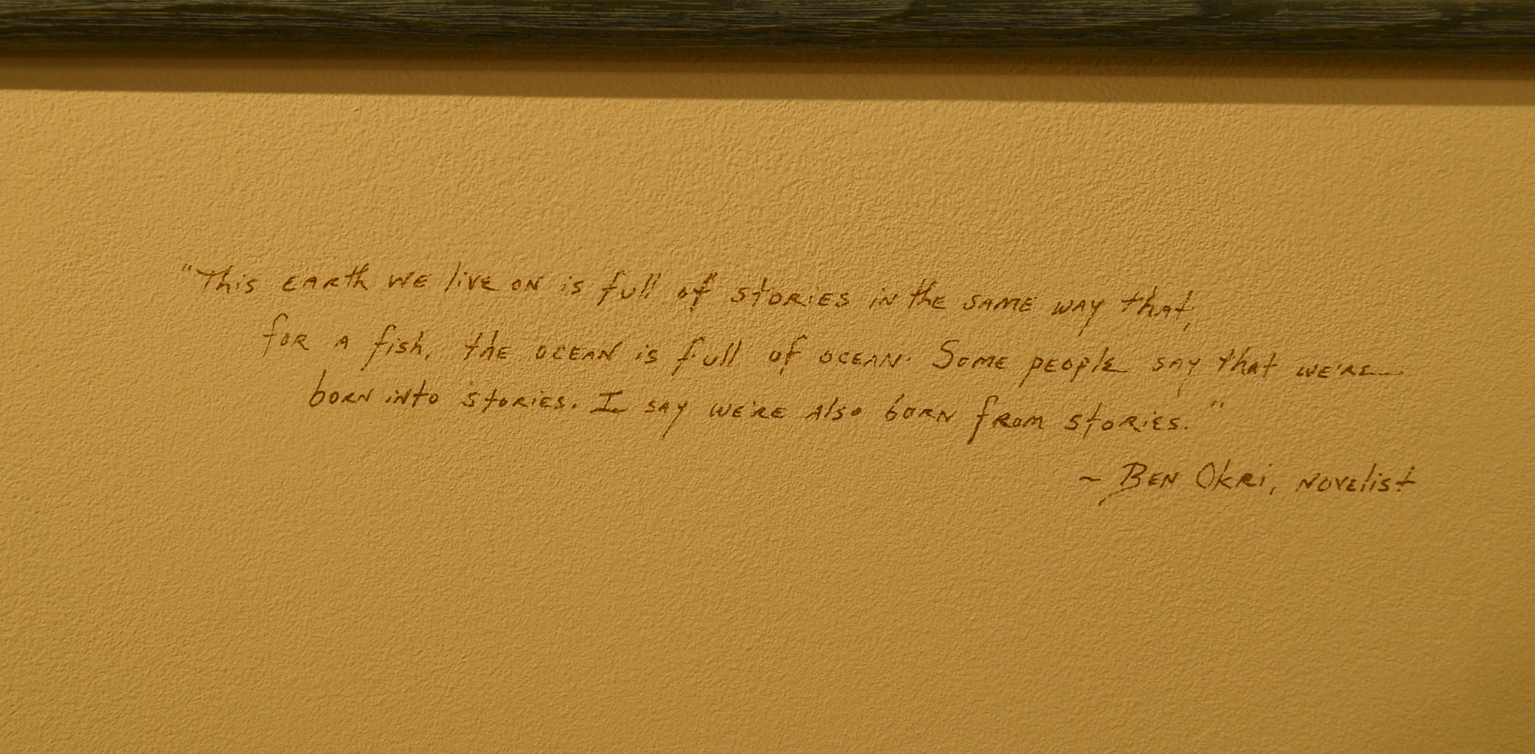 "This earth we live on is full of stories in the same way that,
for a fish, the ocean is full of ocean. Some people say that we're
born into stories. I say we're also born from stories."
~ Ben Okri, novelist